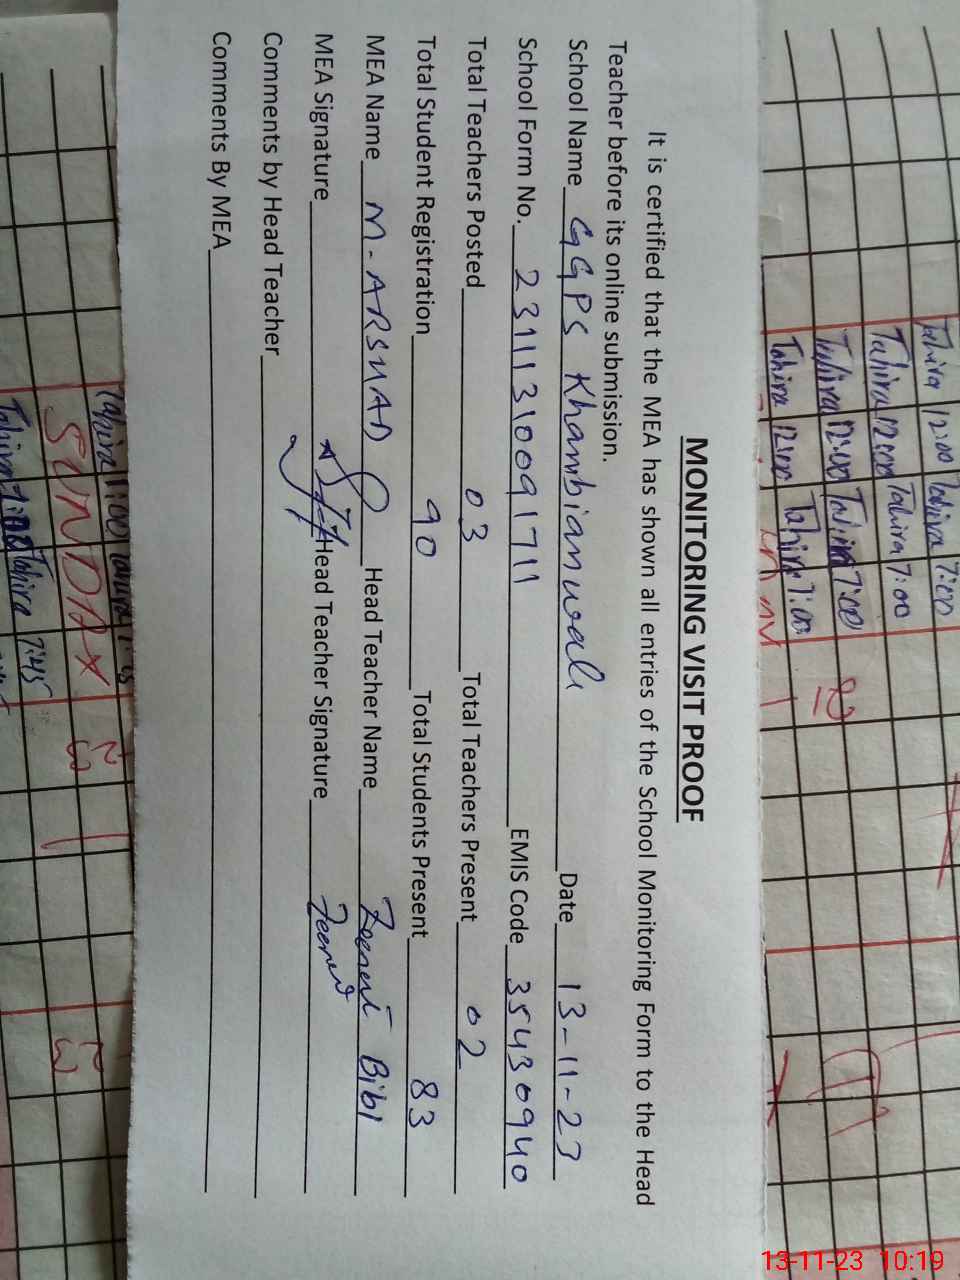 MONITORING VISIT PROOF
It is certified that the MEA has shown all entries of the School Monitoring Form to the Head
Teacher before its online submission.
School Name GGPS Khambianwali Date 13-11-23
School Form No. 2311310091711 EMIS Code 35430940
Total Teachers Posted 03 Total Teachers Present 02
Total Student Registration 90 Total Students Present 83
MEA Name M. ARSHAD Head Teacher Name Zeenat Bibi
MEA Signature Head Teacher Signature Zeenat
Comments by Head Teacher
Comments By MEA
Tahira 12:00 Tahira 7:00
Tahira 12:00 Tahira 7:00
Tahira 12:00 Tahira 7:00
Tahira 12:00 Tahira 7:00
SUNDAY
Tahira 7:45
13-11-23 10:19